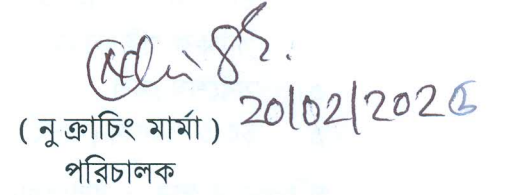 20/02/202
( নু ক্রাচিং মার্মা )
পরিচালক